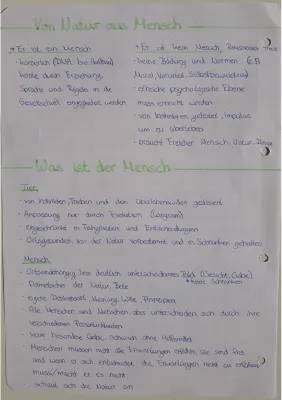 Von Natur aus Mensch
→ Er ist ein Mensch
→ Er ist kein Mensch,
- körperlich (DNA, bis Aufbau)
- keine Bildung und Normen (z.B.
- könnte durch Erziehung,
Moral, Vorurteil, Selbstbewusstsein)
Sprache und Regeln in die
- ethische psychologische Ebene
Gesellschaft eingeordnet werden
muss erreicht werden
- von Instinkten geleitet, Impulse
um zu überleben
- braucht Erzieher Mensch, Natur, Dinge
Was ist der Mensch
Tier:
- von Instinkten, Trieben und dem Überlebenswillen gesteuert
- Anpassung nur durch Evolution (Langsam)
- eingeschränkt in Fähigkeiten und Entscheidungen
- Ortsgebunden, von der Natur vorbestimmt und in Schranken gehalten
Mensch
- Ortsunabhängig, lebt deutlich unterschiedlicher
→ keine Schranken
der Natur,
- eigene Denkweise, Meinung, Wille, Prinzipien
- Alle Menschen sind Menschen aber unterscheiden sich durch ihre
verschiedenen Persönlichkeiten
- keine besondere Gabe, schwach ohne Hilfsmittel
- Menschen müssen nicht die Erwartungen erfüllen, sie sind frei
und wenn er sich entscheidet die Erwartungen nicht zu erfüllen
muss/macht er es nicht
- schaut sich die Natur an